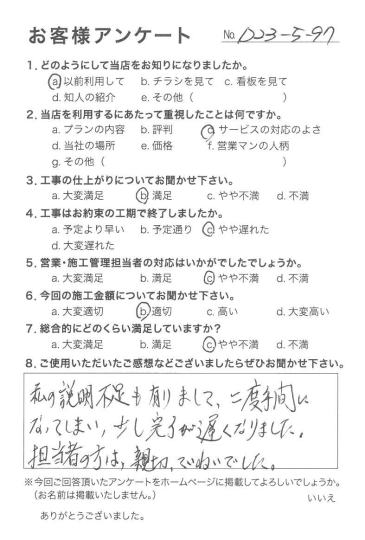 お客様アンケート No. D23-5-97
1. どのようにして当店をお知りになりましたか。
a. 以前利用して b. チラシを見て c. 看板を見て
d. 知人の紹介 e. その他（ ）
2. 当店を利用するにあたって重視したことは何ですか。
a. プランの内容 b. 評判 c. サービスの対応のよさ
d. 当社の場所 e. 価格 f. 営業マンの人柄
g. その他（ ）
3. 工事の仕上がりについてお聞かせ下さい。
a. 大変満足 b. 満足 c. やや不満 d. 不満
4. 工事はお約束の工期で終了しましたか。
a. 予定より早い b. 予定通り c. やや遅れた
d. 大変遅れた
5. 営業・施工管理担当者の対応はいかがでしたでしょうか。
a. 大変満足 b. 満足 c. やや不満 d. 不満
6. 今回の施工金額についてお聞かせ下さい。
a. 大変適切 b. 適切 c. 高い d. 大変高い
7. 総合的にどのくらい満足していますか？
a. 大変満足 b. 満足 c. やや不満 d. 不満
8. ご使用いただいたご感想などございましたらぜひお聞かせ下さい。
私の説明不足も有りまして、二度手間に
なってしまい、少し完了が遅くなりました。
担当者の方は、親切、ていねいでした。
※今回ご回答頂いたアンケートをホームページに掲載してよろしいでしょうか。
（お名前は掲載いたしません。） いいえ
ありがとうございました。